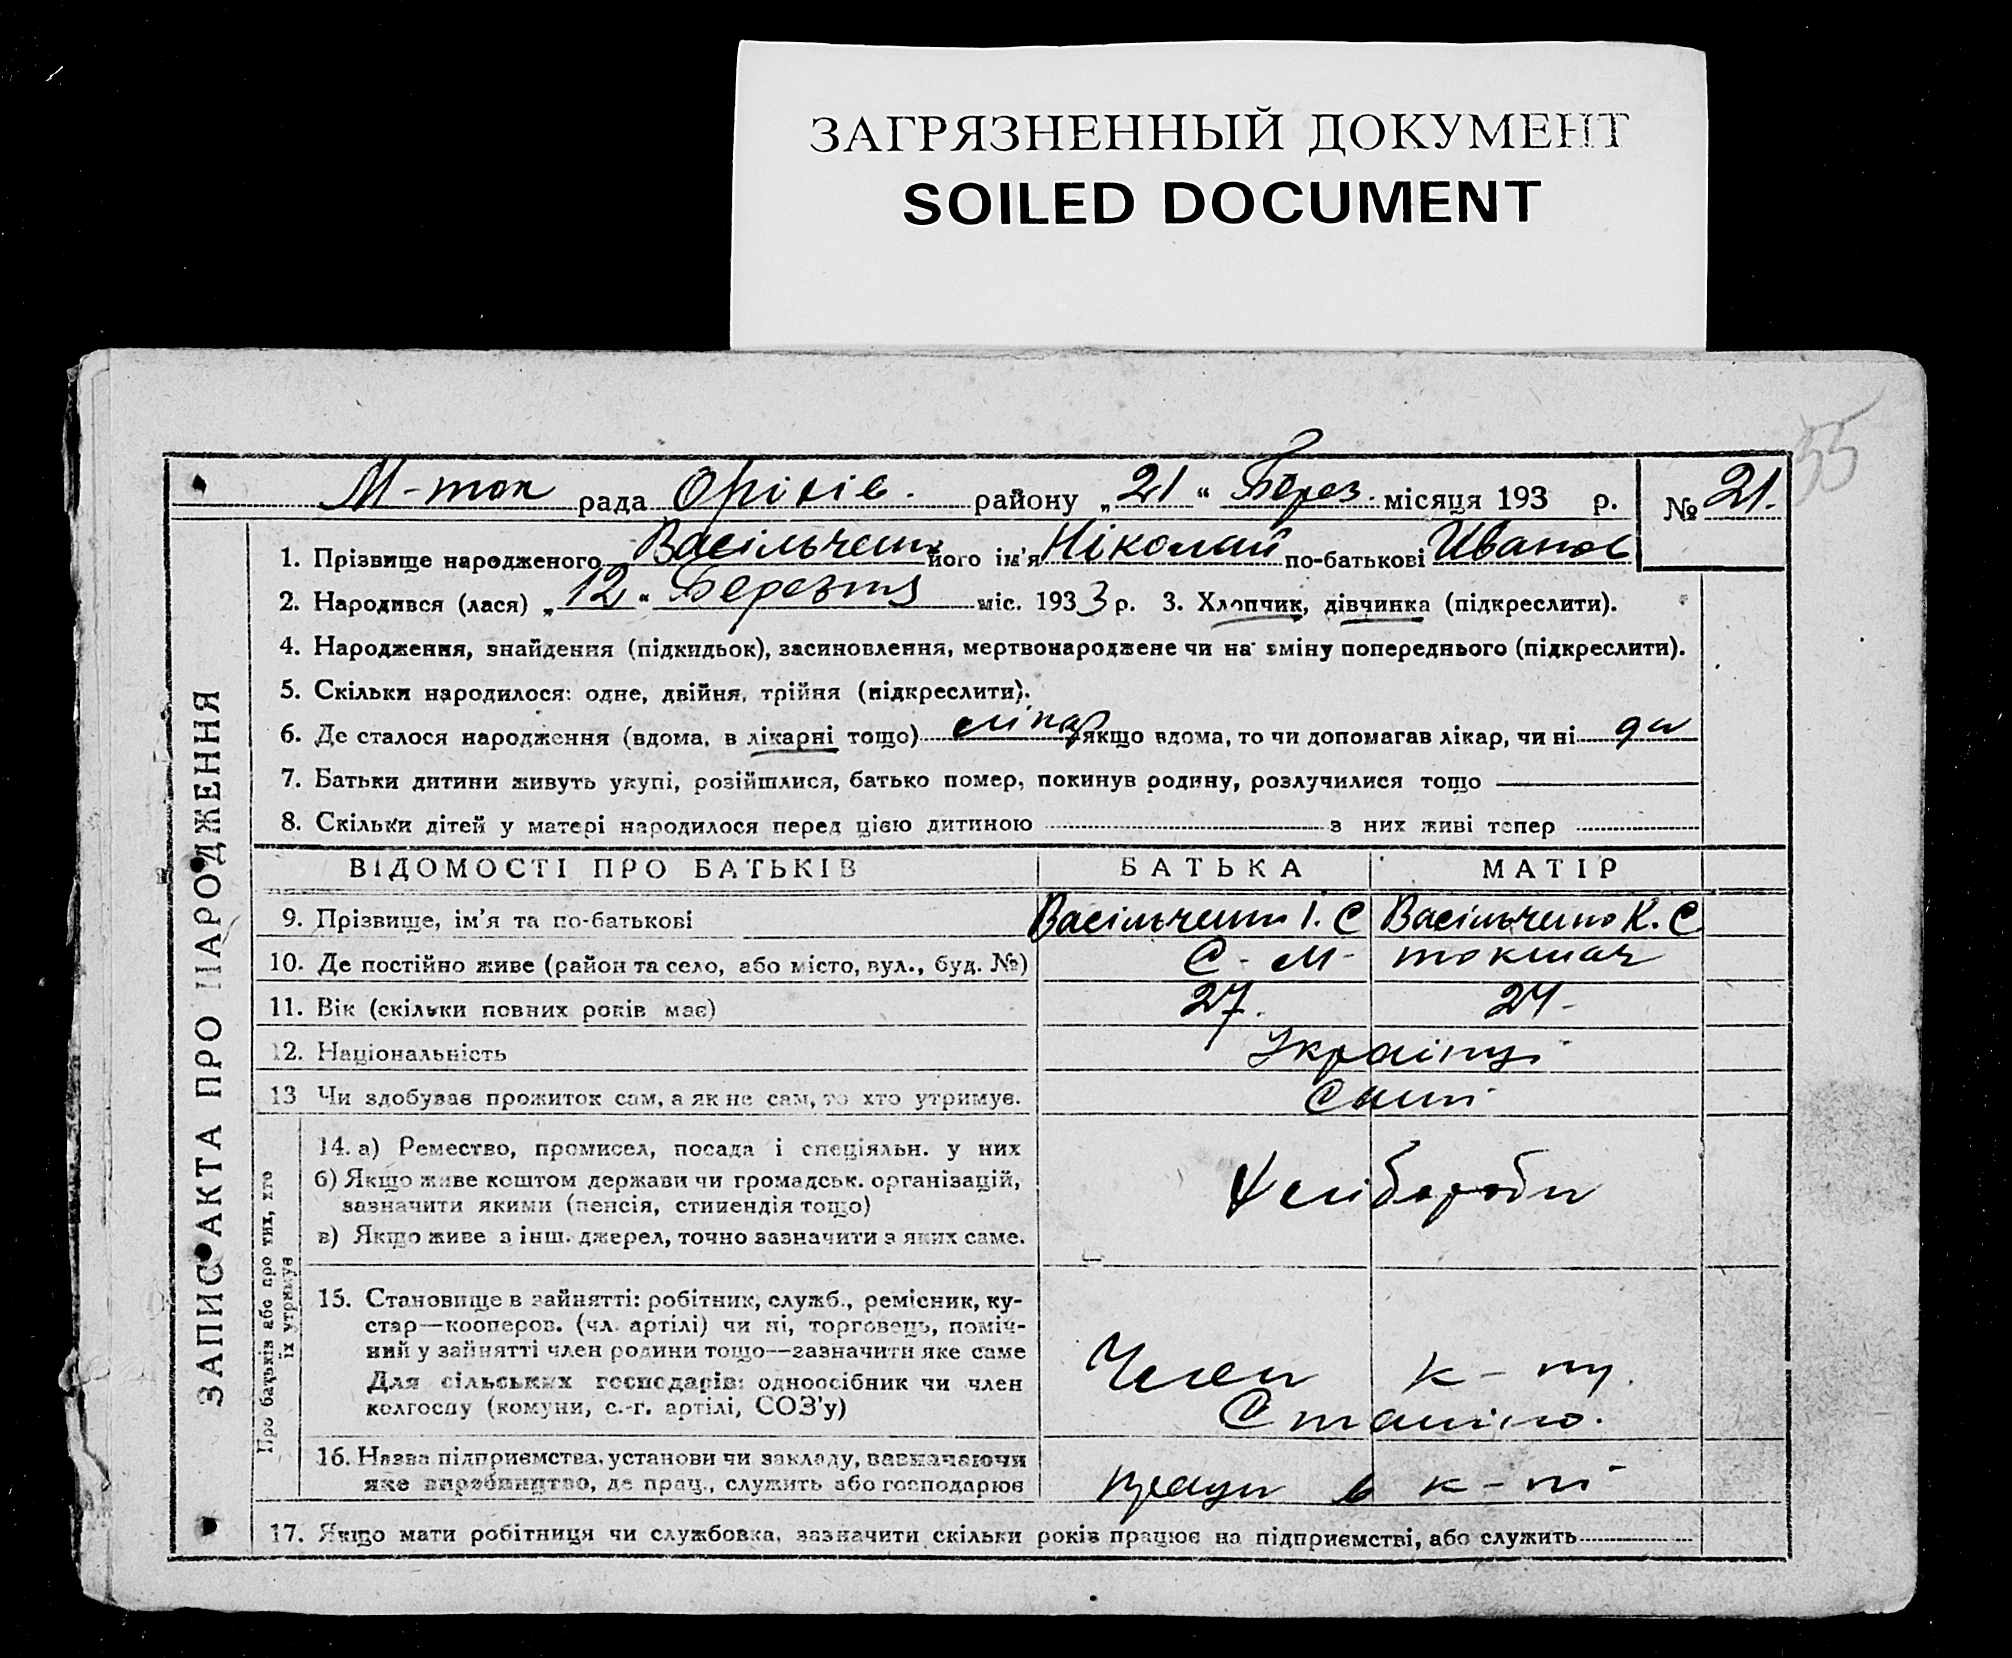 ЗАГРЯЗНЕННЫЙ ДОКУМЕНТ
SOILED DOCUMENT
55
М-ток рада Оріхів. району „21“ Берез. місяця 193 р. № 21.
ЗАПИС АКТА ПРО НАРОДЖЕННЯ
1. Прізвище народженого Васільченко його ім'я Ніколай по-батькові Иванов
2. Народився (лася) „12“ Березня міс. 1933 р. 3. Хлопчик, дівчинка (підкреслити).
4. Народження, знайдення (підкидьок), засиновлення, мертвонароджене чи на зміну попереднього (підкреслити).
5. Скільки народилося: одне, двійня, трійня (підкреслити).
6. Де сталося народження (вдома, в лікарні тощо) лікар якщо вдома, то чи допомагав лікар, чи ні да
7. Батьки дитини живуть укупі, розійшлися, батько помер, покинув родину, розлучилися тощо
8. Скільки дітей у матері народилося перед цією дитиною з них живі тепер
ВІДОМОСТІ ПРО БАТЬКІВ БАТЬКА МАТІР
9. Прізвище, ім'я та по-батькові Васільченко І. С Васільченко К. С
10. Де постійно живе (район та село, або місто, вул., буд. №) С - М - токмач
11. Вік (скільки повних років має) 27. 24-
12. Національність Українці
13 Чи здобував прожиток сам, а як не сам, то хто утримує. Самі
Про батьків або про тих, хто їх утримує
14. а) Ремество, промисел, посада і спеціяльн. у них
б) Якщо живе коштом держави чи громадськ. організацій,
зазначити якими (пенсія, стипендія тощо)
в) Якщо живе з інш. джерел, точно зазначити з яких саме.
Хліборобы
15. Становище в зайнятті: робітник, служб., ремісник, ку-
стар—кооперов. (чл. артілі) чи ні, торговець, поміч-
ний у зайнятті член родини тощо—зазначити яке саме
Для сільських господарів: одноосібник чи член
колгоспу (комуни, с.-г. артілі, СОЗ'у)
Член к-пу.
Сталіно.
16. Назва підприємства, установи чи закладу, зазначаючи
яке виробництво, де прац., служить або господарює
в к-пі
17. Якщо мати робітниця чи службовка, зазначити скільки років працює на підприємстві, або служить